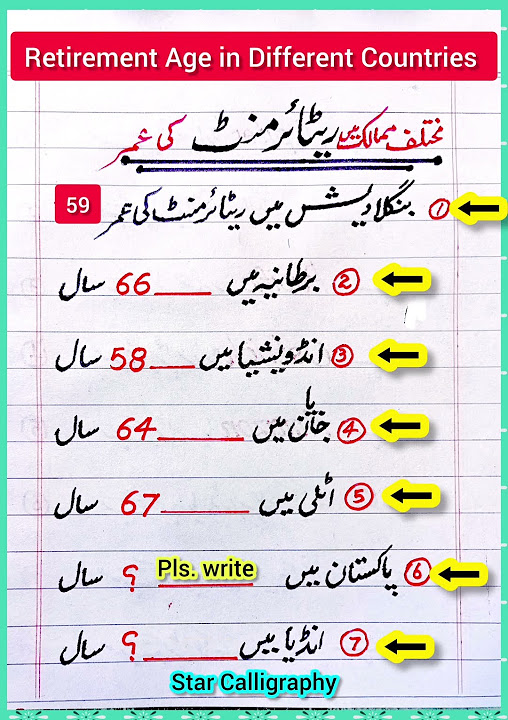 Retirement Age in Different Countries
مختلف ممالک میں ریٹائرمنٹ کی عمر
① بنگلادیش میں ریٹائرمنٹ کی عمر 59
② برطانیہ میں ____ 66 سال
③ انڈونیشیا میں ____ 58 سال
④ جاپان میں ____ 64 سال
⑤ اٹلی میں ____ 67 سال
⑥ پاکستان میں Pls. write ؟ سال
⑦ انڈیا میں ____ ؟ سال
Star Calligraphy